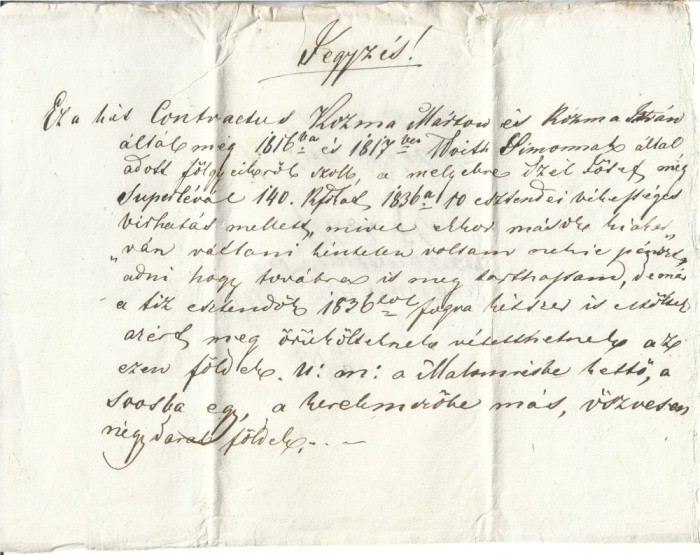 Jegyzés!
Ez a két Contractus Kozma Márton és Kozma István
által még 1816ba és 1817ben Voith Simonnak által
adott földjeikről szoll, a melyekre Szél Jósef még
Superlevál 140. Rftot 1836a 10 esztendei vehességes
virhatás mellett, mivel akkor mások kiakar„
„ván váltani kéntelen voltam nekie pénzt
adni hogy továbra is meg tarthassam, de már
a tiz esztendők 1836tol fogva kétszer is eltőltek
azért meg örökölteknek vétetthetnek az
ezen földek. U: m: a Malomrésbe kettő, a
Soosba egy, a kerekmezőbe más, öszvesen
négy darab földek. - -